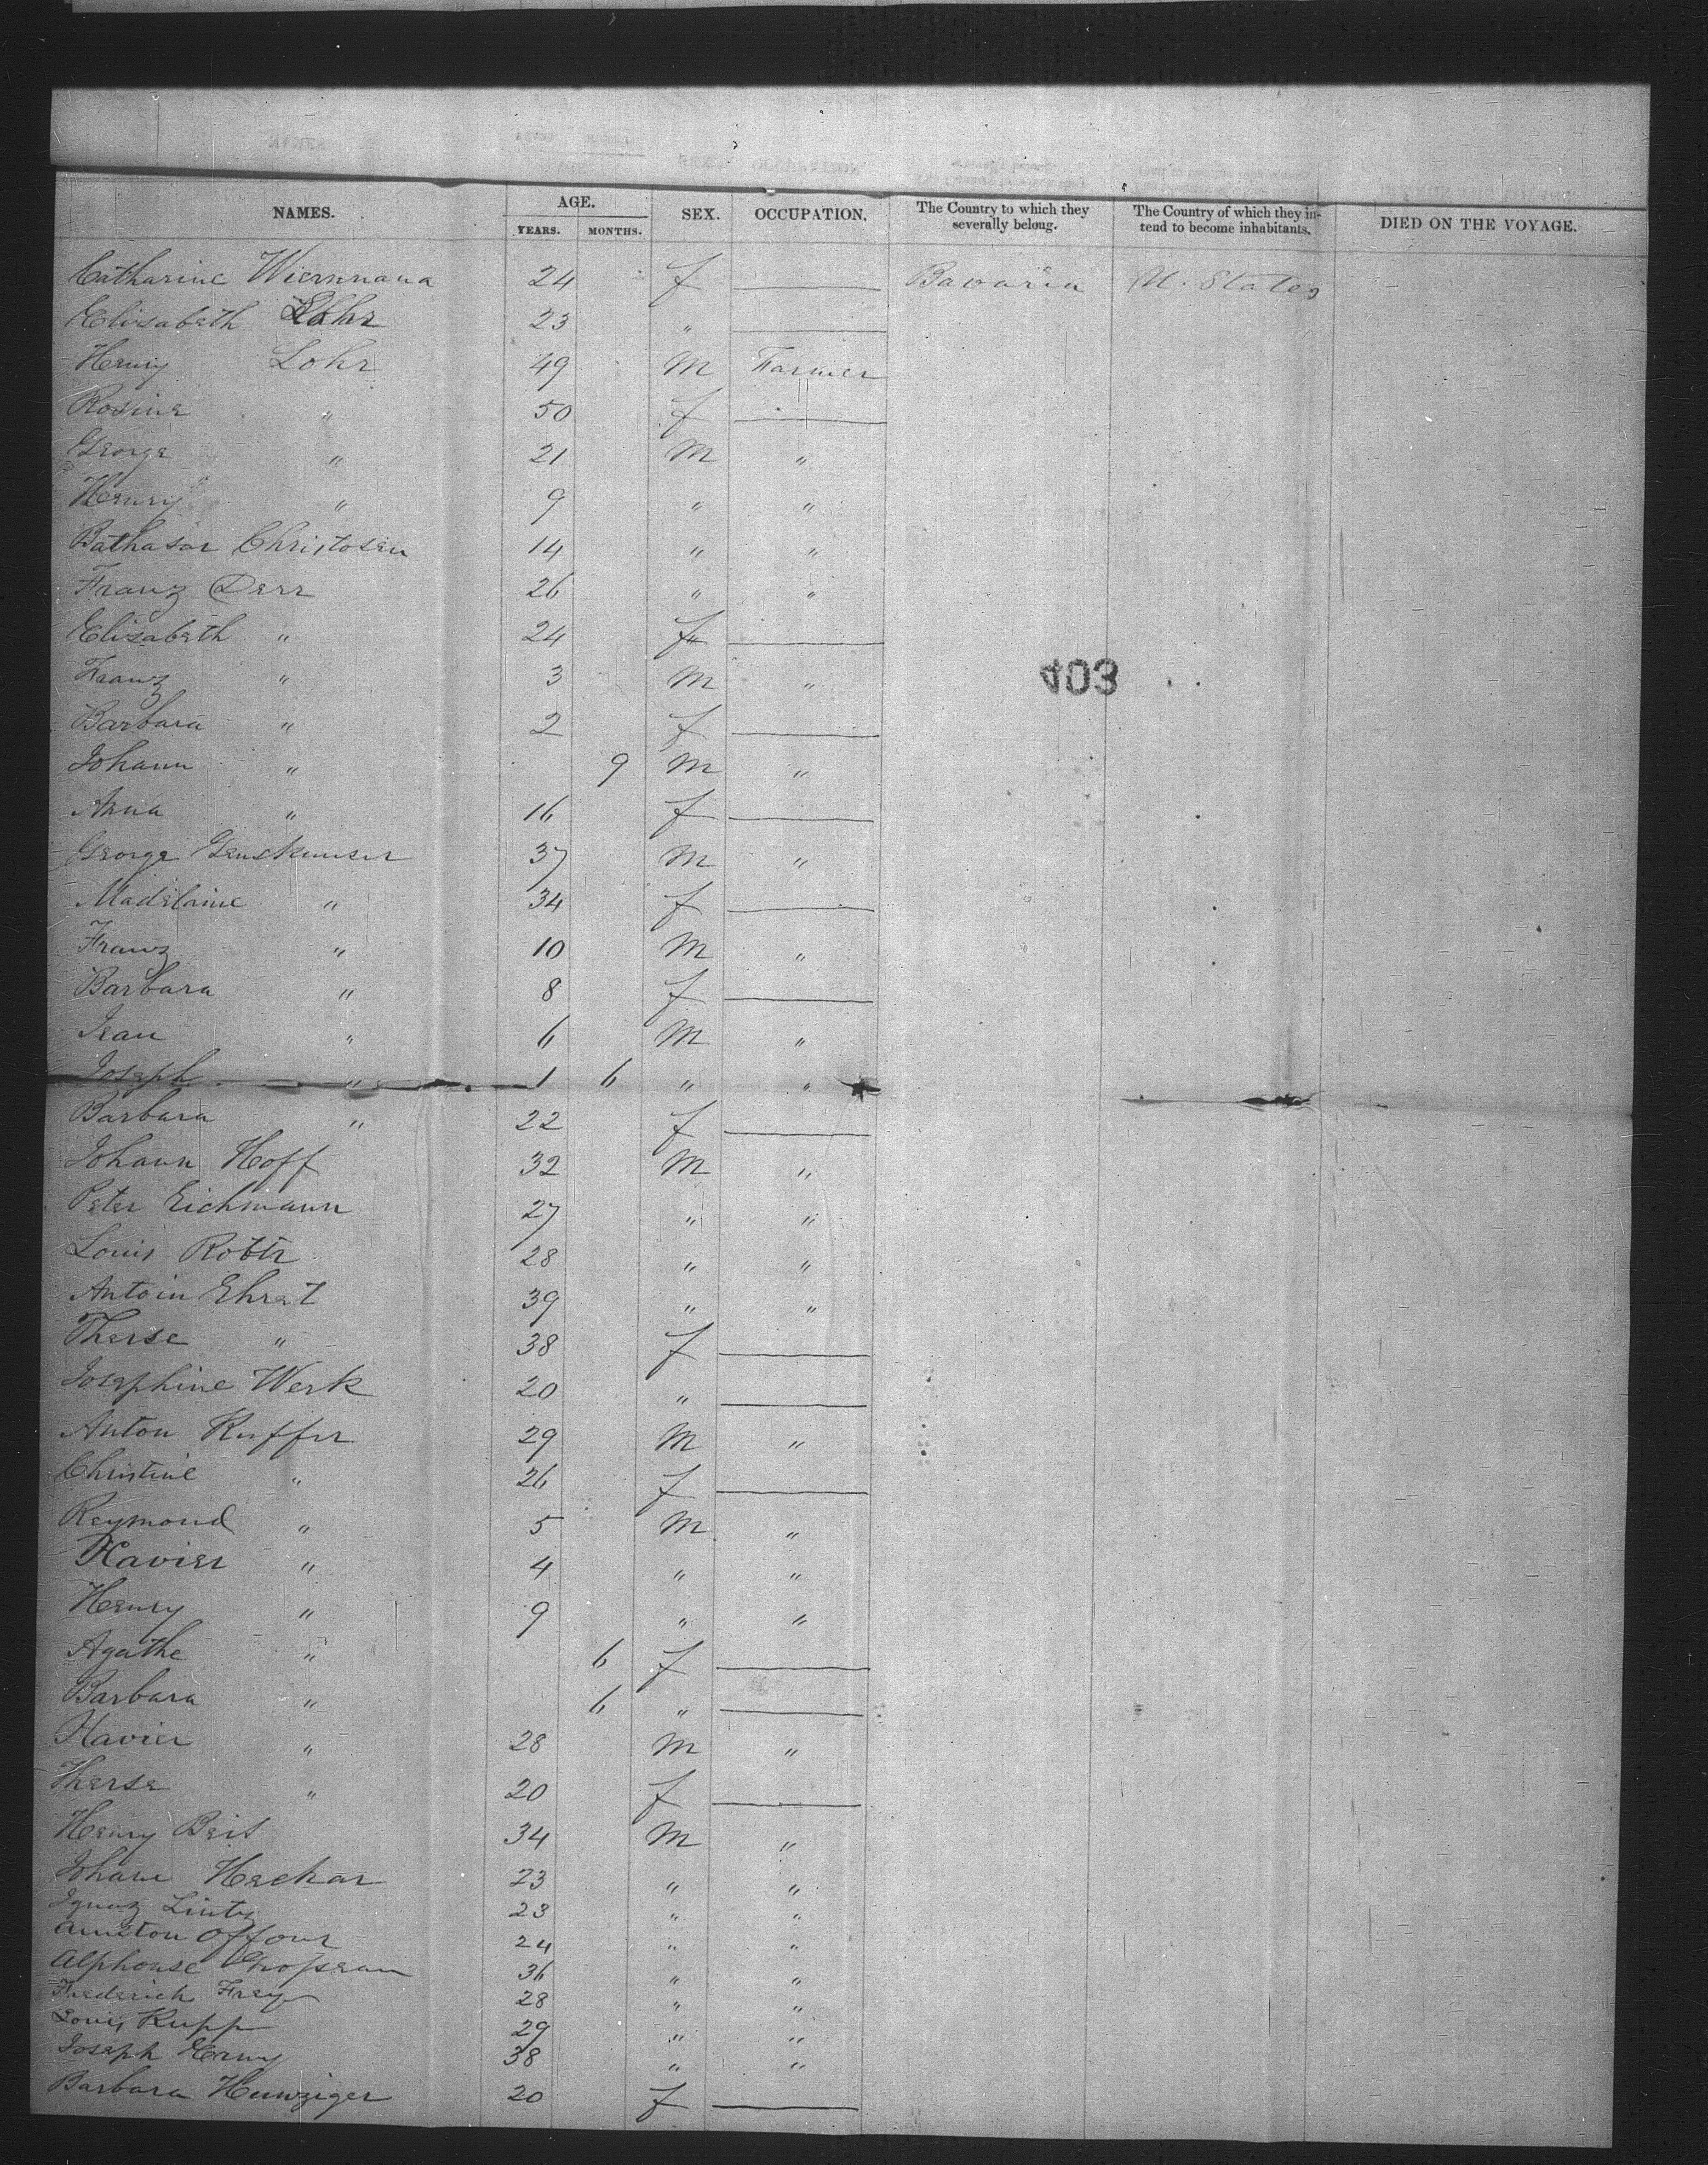 NAMES. AGE. SEX. OCCUPATION. The Country to which they severally belong. The Country of which they intend to become inhabitants. DIED ON THE VOYAGE.
YEARS. MONTHS.
Catharine Wiernnana 24 f — Bavaria U. States
Elisabeth Lohr 23 " —
Henry Lohr 49 M Farmer
Rosine " 50 f —
George " 21 M "
Henry " 9 " "
Bathasar Christosen 14 " "
Franz Derr 26 " "
Elizabeth " 24 f —
Franz " 3 M "
Barbara " 2 f —
Johann " 9 M "
Anna " 16 f —
George 37 M "
Madelaine " 34 f —
Franz " 10 M "
Barbara " 8 f —
Jean " 6 M "
Joseph " 1 6 " "
Barbara " 22 f —
Johann Hoff 32 M "
Peter Eichmann 27 " "
Louis 28 " "
Antoin Ehret 39 " "
Therse " 38 f —
Josephine Werk 20 " —
Anton Ruffer 29 M "
Christine " 26 f —
Reymond " 5 M "
Xavier " 4 " "
Henry " 9 " "
Agathe " 6 f —
Barbara " 6 " —
Xavier " 28 M "
Therse " 20 f —
Henry Beit 34 M "
Johann Heckar 23 " "
Ignaz Lintz 23 " "
24 " "
Alphonse 36 " "
Frederich Frey 28 " "
Louis Rupp 29 " "
Joseph 38 " "
Barbara Hunziger 20 f —
403